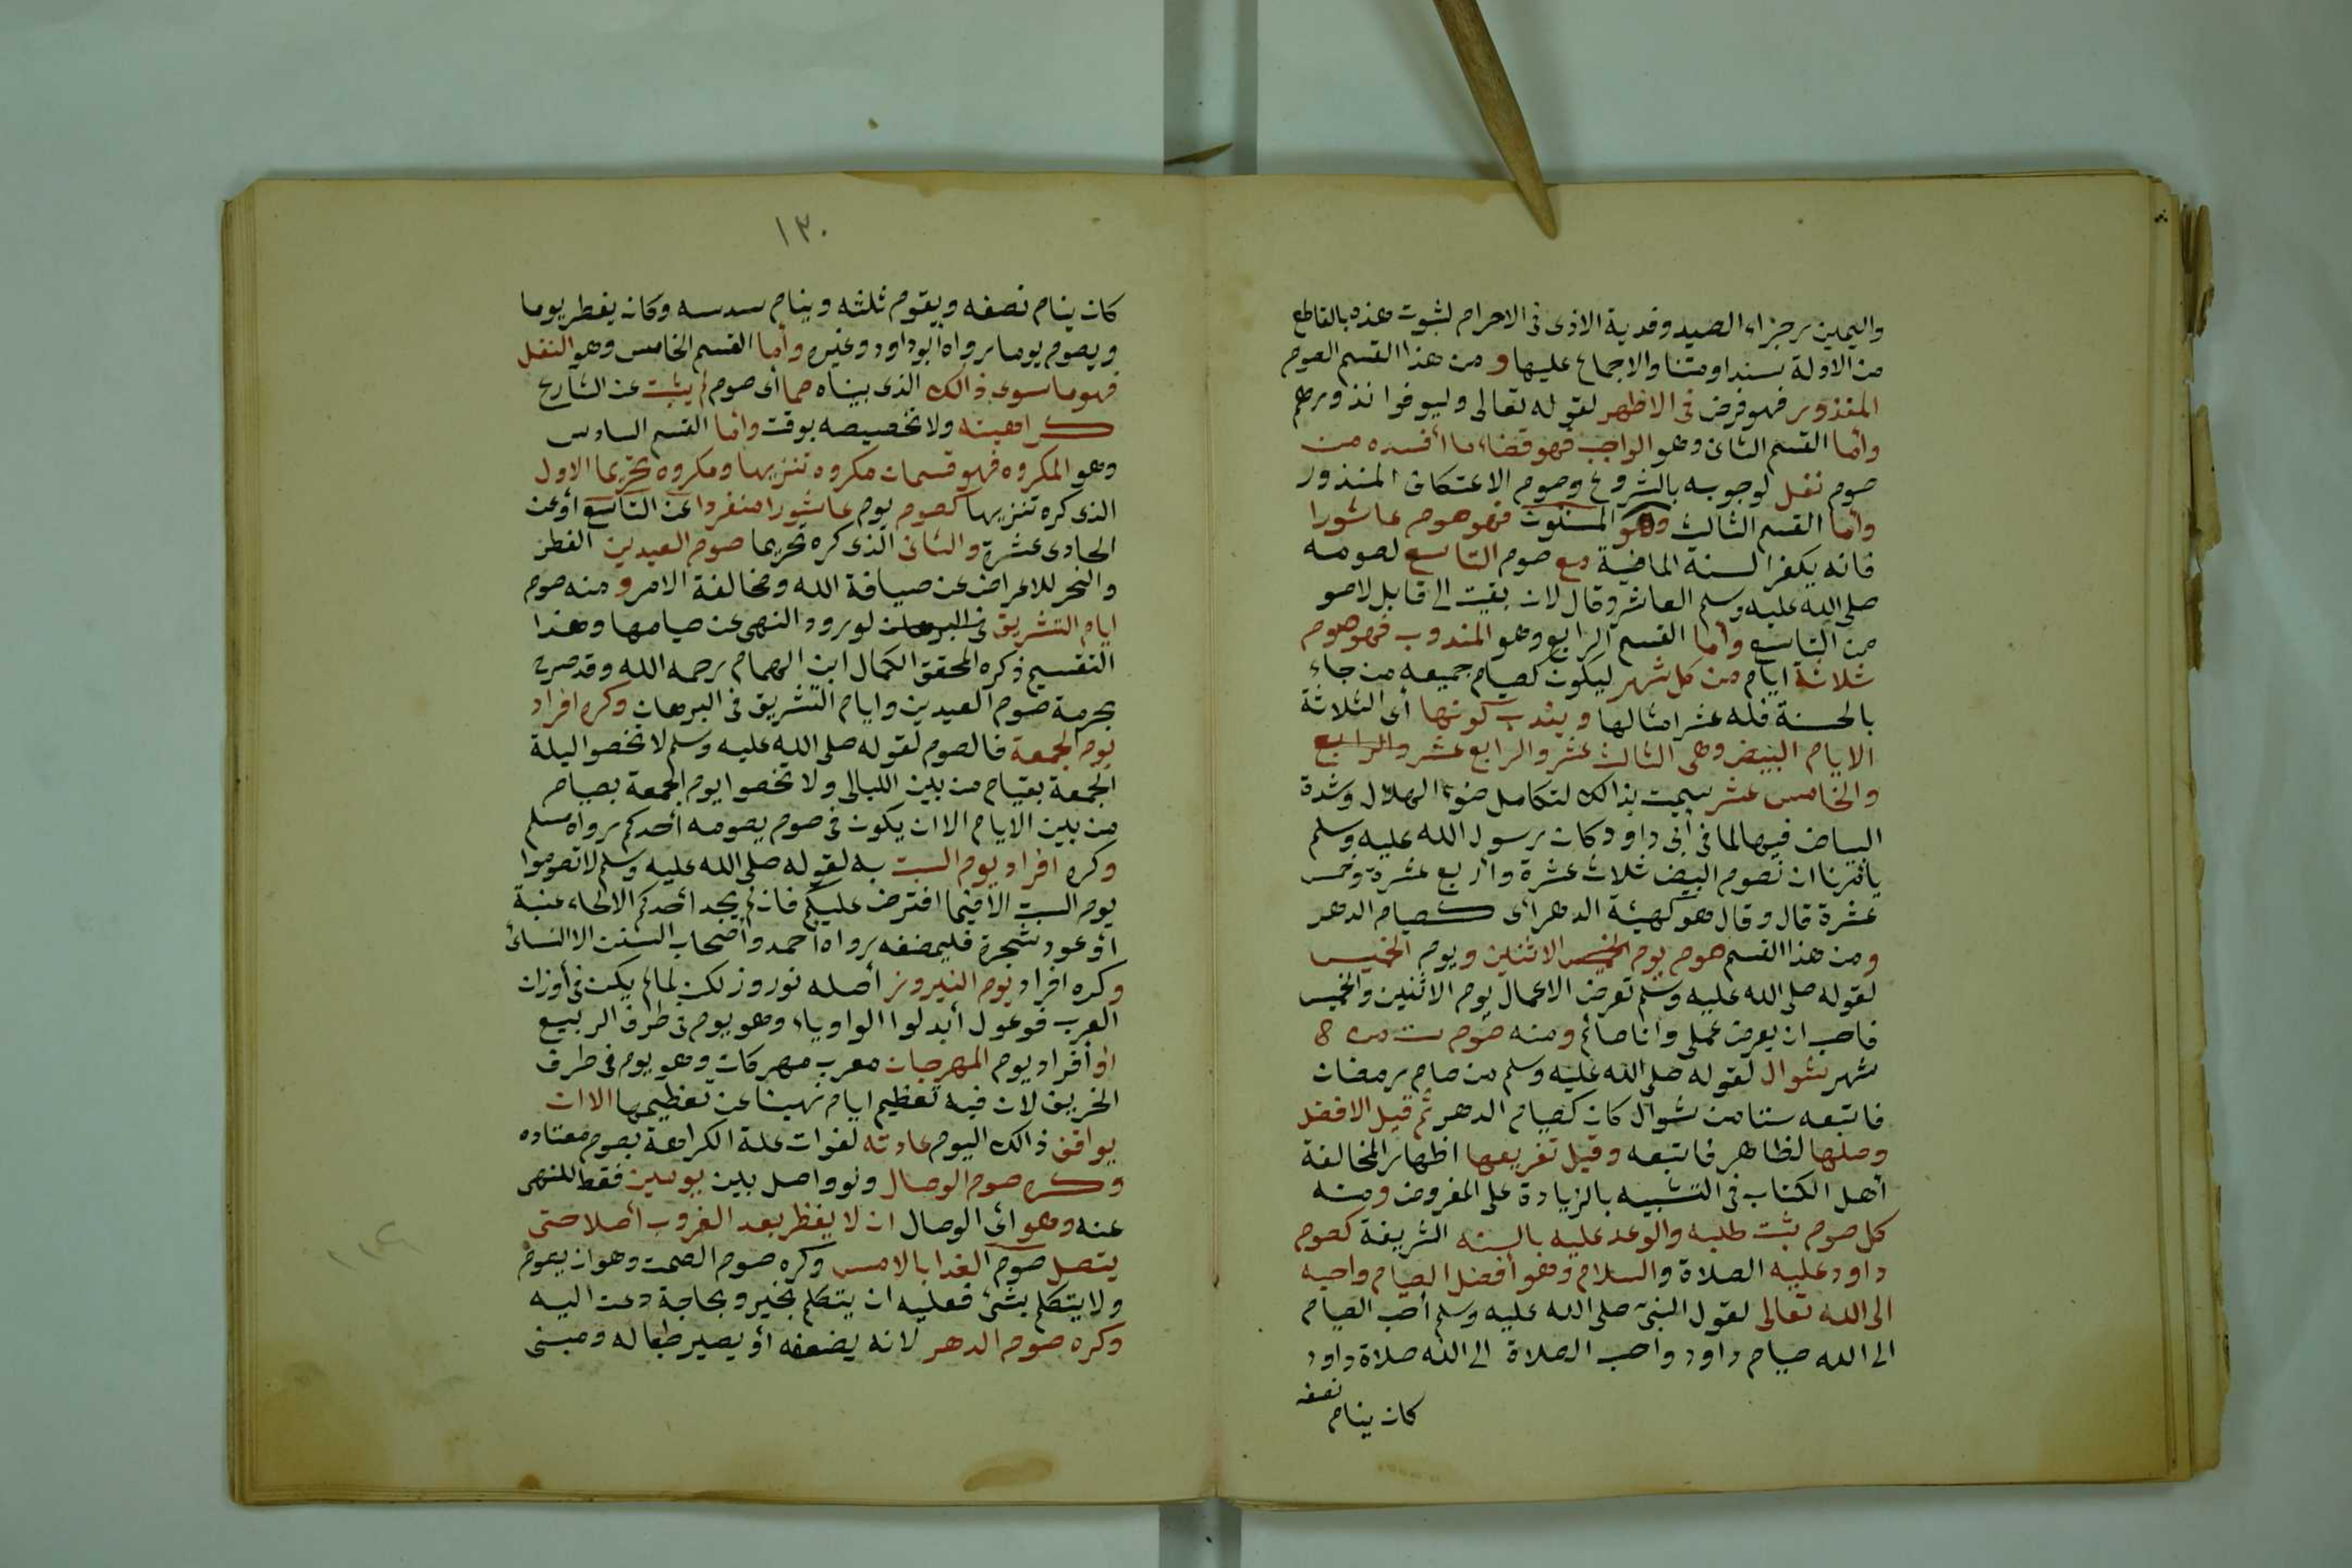 واليمين وجزاء الصيد وفدية الاذى في الاحرام لثبوت هذه بالقاطع
من الادلة سندا ومتنا والاجماع عليها و من هذا القسم الصوم
المنذور فهو فرض فى الاظهر لقوله تعالى وليوفوا نذورهم
وأما القسم الثانى وهو الواجب فهو قضاء ما أفسده من
صوم نفل لوجوبه بالشروع وصوم الاعتكاف المنذور
وأما القسم الثالث وهو المسنون فهو صوم عاشورا
فانه يكفر السنة الماضية مع صوم التاسع لصومه
صلى الله عليه وسلم العاشر وقال لان بقيت الى قابل لاصو
من التاسع وأما القسم الرابع وهو المندوب فهو صوم
ثلاثة ايام من كل شهر ليكون كصيام جميعه من جاء
بالحسنة فله عشر امثالها ويندب كونها أى الثلاثة
الايام البيض وهى الثالث عشر والرابع عشر والرابع
والخامس عشر سميت بذالك لتكامل ضوء الهلال وشدة
البياض فيها لما فى أبى داود كان رسول الله عليه وسلم
يأمرنا ان نصوم البيض ثلاث عشرة وأربع عشرة وخمس
عشرة قال وقال هو كهيئة الدهر أى كصيام الدهر
ومن هذا القسم صوم يوم الخميس الاثنين ويوم الخميس
لقوله صلى الله عليه وسلم تعرض الاعمال يوم الاثنين والخميس
فاحب ان يعرض عملى وانا صائم ومنه صوم ست من
شهر شوال لقوله صلى الله عليه وسلم من صام رمضان
فاتبعه ستا من شوال كان كصيام الدهر ثم قيل الافضل
وصلها لظاهر فاتبعه وقيل تفريقها اظهار المخالفة
أهل الكتاب فى التشبيه بالزيادة على المفروض ومنه
كل صوم ثبت طلبه والوعد عليه بالسنه الشريفة كصوم
داود عليه الصلاة والسلام وهو أفضل الصيام واحبه
الى الله تعالى لقول النبى صلى الله عليه وسلم أحب الصيام
الى الله صيام داود واحب الصلاة الى الله صلاة داود
كان ينام نصفه
١٣٠
كان ينام نصفه ويقوم ثلثه وينام سدسه وكان يفطر يوما
ويصوم يوما رواه ابو داود وغيره وأما القسم الخامس وهو النفل
فهو ما سوى ذالك الذى بيناه مما أى صوم لم يثبت عن الشارع
كراهيته ولا تخصيصه بوقت وأما القسم السادس
وهو المكروه فهو قسمان مكروه تنزيها ومكروه تحريما الاول
الذى كره تنزيها كصوم يوم عاشورا منفردا عن التاسع أو عن
الحادى عشرة والثانى الذى كره تحريما صوم العيدين الفطر
والنحر للاعراض عن ضيافة الله ومخالفة الامر و منه صوم
ايام التشريق فى البرهان لورود النهى عن صيامها وهذا
التقسيم ذكره المحقق الكمال ابن الهمام رحمه الله وقد صرح
بحرمة صوم العيدين وايام التشريق فى البرهان وكره افراد
يوم الجمعة فالصوم لقوله صلى الله عليه وسلم لا تخصوا ليلة
الجمعة بقيام من بين الليالى ولا تخصوا يوم الجمعة بصيام
من بين الايام الا ان يكون فى صوم يصومه أحدكم رواه مسلم
وكره افراد يوم السبت به لقوله صلى الله عليه وسلم لا تصوموا
يوم السبت الا فيما افترض عليكم فان لم يجد أحدكم الا لحاء عنبة
أو عود شجرة فليمضغه رواه أحمد وأصحاب السنن الا النسائ
وكره افراد يوم النيروز أصله نوروز لكن لما لم يكن فى أوزان
العرب فوعول أبدلوا الواو ياء وهو يوم فى طرف الربيع
او أفراد يوم المهرجان معرب مهركان وهو يوم فى طرف
الخريف لان فيه تعظيم ايام نهينا عن تعظيمها الا ان
يوافق ذالك اليوم عادته لفوات علة الكراهة بصوم معتاده
وكره صوم الوصال ولو واصل بين يومين فقط للنهى
عنه وهو اى الوصال ان لا يفطر بعد الغروب أصلا حتى
يتصل صوم الغدا بالامس وكره صوم الصمت وهو ان يصوم
ولا يتكلم بشئ فعليه ان يتكلم بخير وبحاجة دعت اليه
وكره صوم الدهر لانه يضعفه أو يصير طبعا له ومبنى